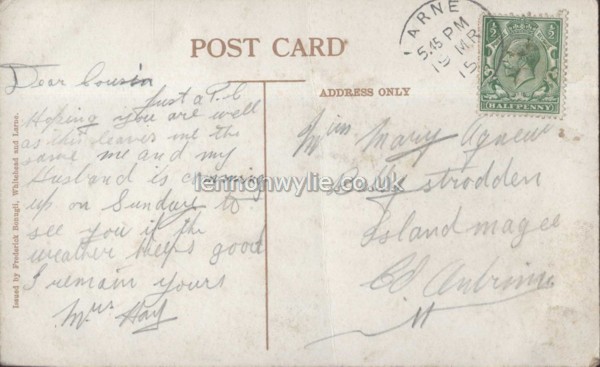 POST CARD
ADDRESS ONLY
LARNE
5.45 PM
19 MR
15
HALFPENNY
Dear Cousin
Just a P.C
Hoping you are well
as this leaves me the
same me and my
Husband is coming
up on Sunday to
see you if the
weather keeps good
I remain yours
Mrs Hay
Miss Mary Agnew
Ballystrodden
Islandmagee
Co Antrim
lennonwylie.co.uk
Issued by Frederick Bonugli, Whitehead and Larne.